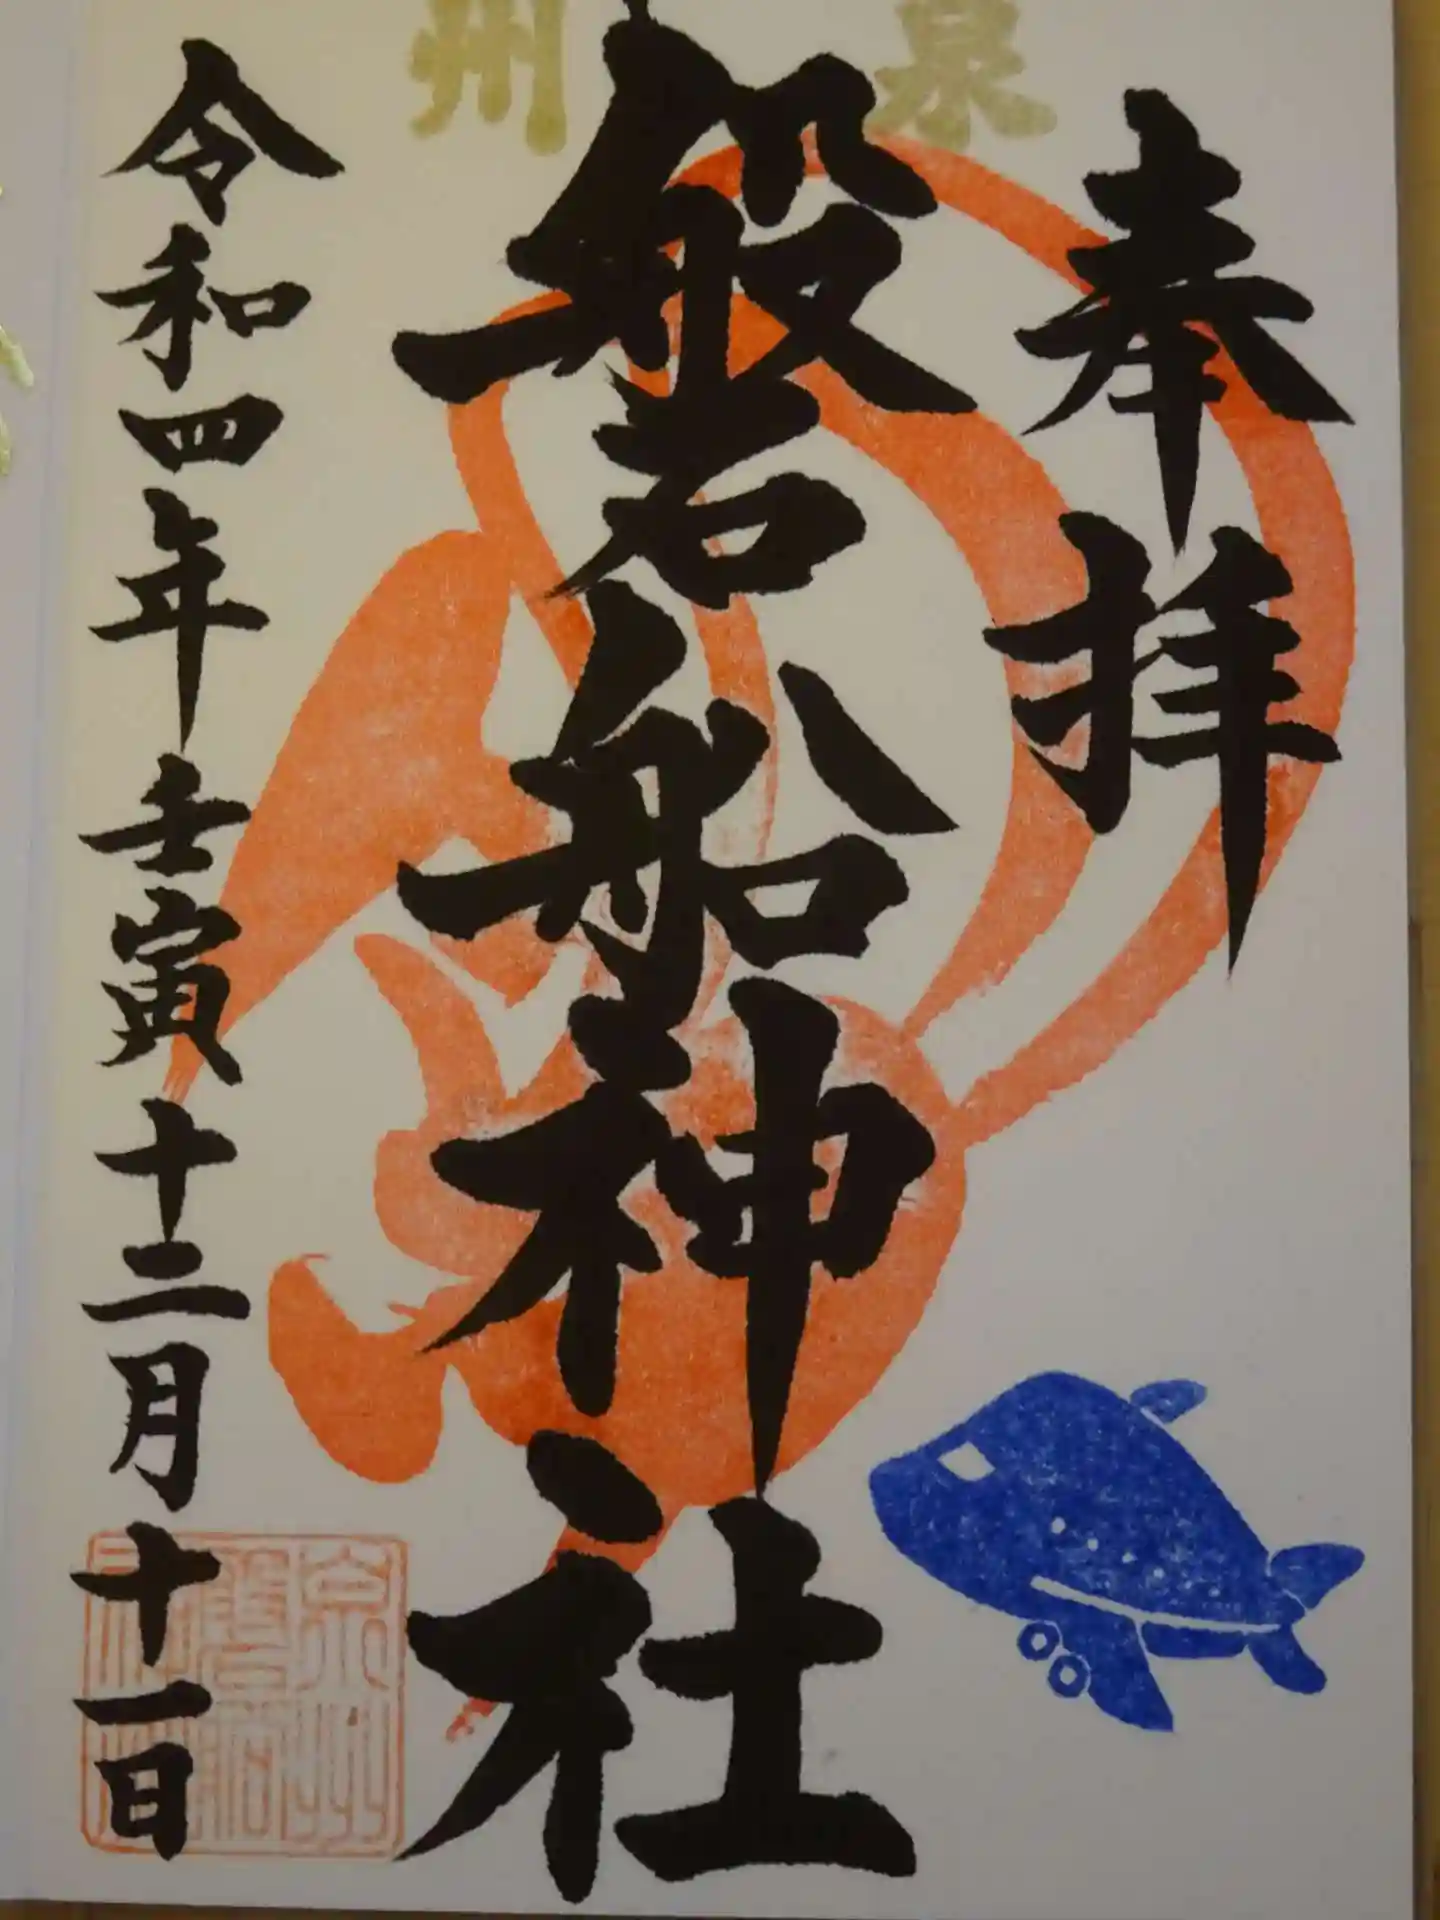 泉州
奉拝
般若船神社
令和四年壬寅十二月十一日